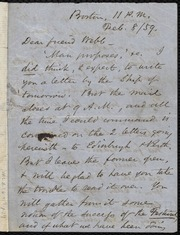 Boston, 11 P.M.
Feb. 8/59.
Dear friend Webb—
"Man proposes," &c. I
did think & expect to write
you a letter by the Ship of
tomorrow. But the mail
closes at 9 A.M., and all
the time I could command is
in the 2 letters you,
herewith – to Edinburgh & Bath.
But I leave the former open,
& will be glad to have you take
the trouble to read it over. You
will gather from it some
of the success of the
and if what we have been